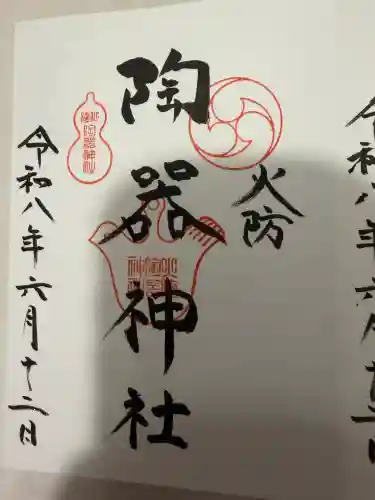 火防
陶器神社
令和八年六月十二日
令和八年六月十二日